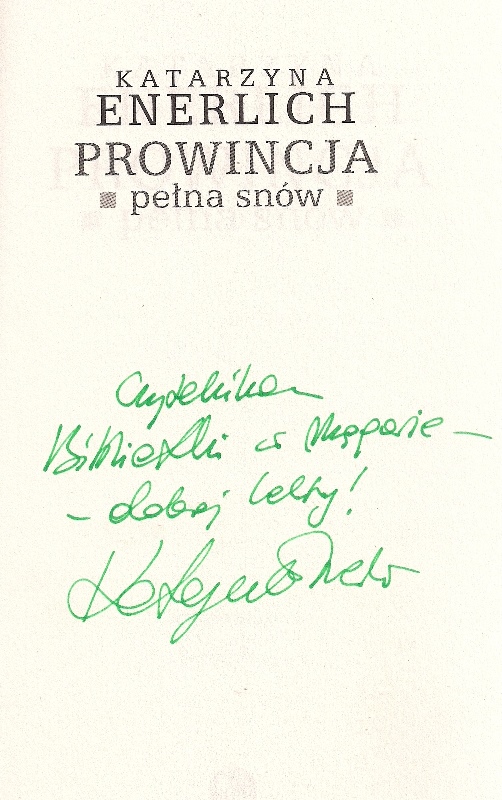 KATARZYNA
ENERLICH
PROWINCJA
pełna snów
Czytelnikom
Biblioteki w
– dobrej lektury!
Katarzyna